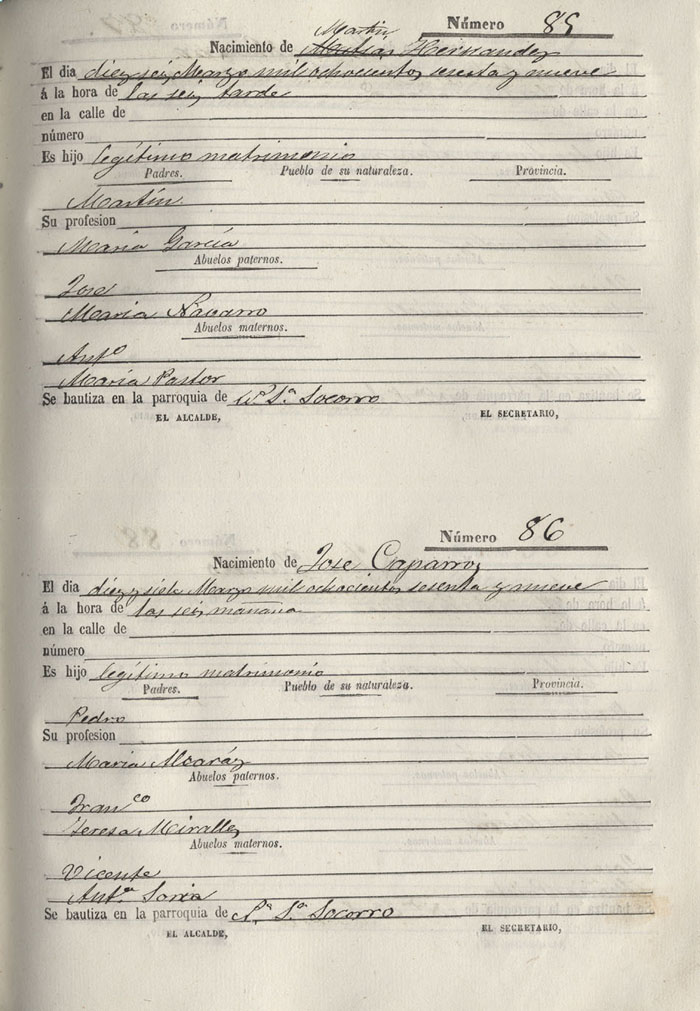 Número 85
Martin
Nacimiento de Matias Hernandez
El dia diez y seis Marzo mil ochocientos sesenta y nueve
á la hora de las seis tarde
en la calle de
número
Es hijo legítimo matrimonio
Padres. Pueblo de su naturaleza. Provincia.
Martin
Su profesion
Maria García
Abuelos paternos.
Jose
Maria Navarro
Abuelos maternos.
Antº
Maria Pastor
Se bautiza en la parroquia de Sª Socorro
EL ALCALDE, EL SECRETARIO,
Número 86
Nacimiento de Jose Caparros
El dia diez y siete Marzo mil ochocientos sesenta y nueve
á la hora de las seis mañana
en la calle de
número
Es hijo legítimo matrimonio
Padres. Pueblo de su naturaleza. Provincia.
Pedro
Su profesion
Maria Alcaráz
Abuelos paternos.
Franco
Teresa Miralles
Abuelos maternos.
Vicente
Antª Soria
Se bautiza en la parroquia de Nª Sª Socorro
EL ALCALDE, EL SECRETARIO,